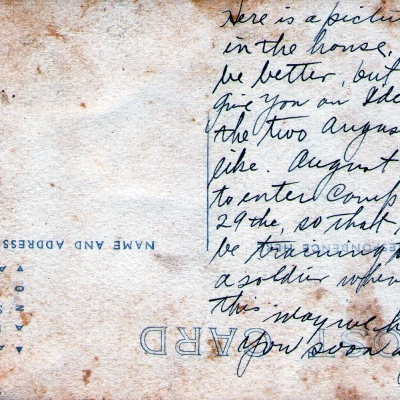 Here is a pictu
in the house,
be better, but
give you an Ide
the two Augus
like. August
to enter Camp
29the, so that
be training
a soldier when
this way we h
you soon
NAME AND ADDRESS
ESPONDENCE HE
OST CARD